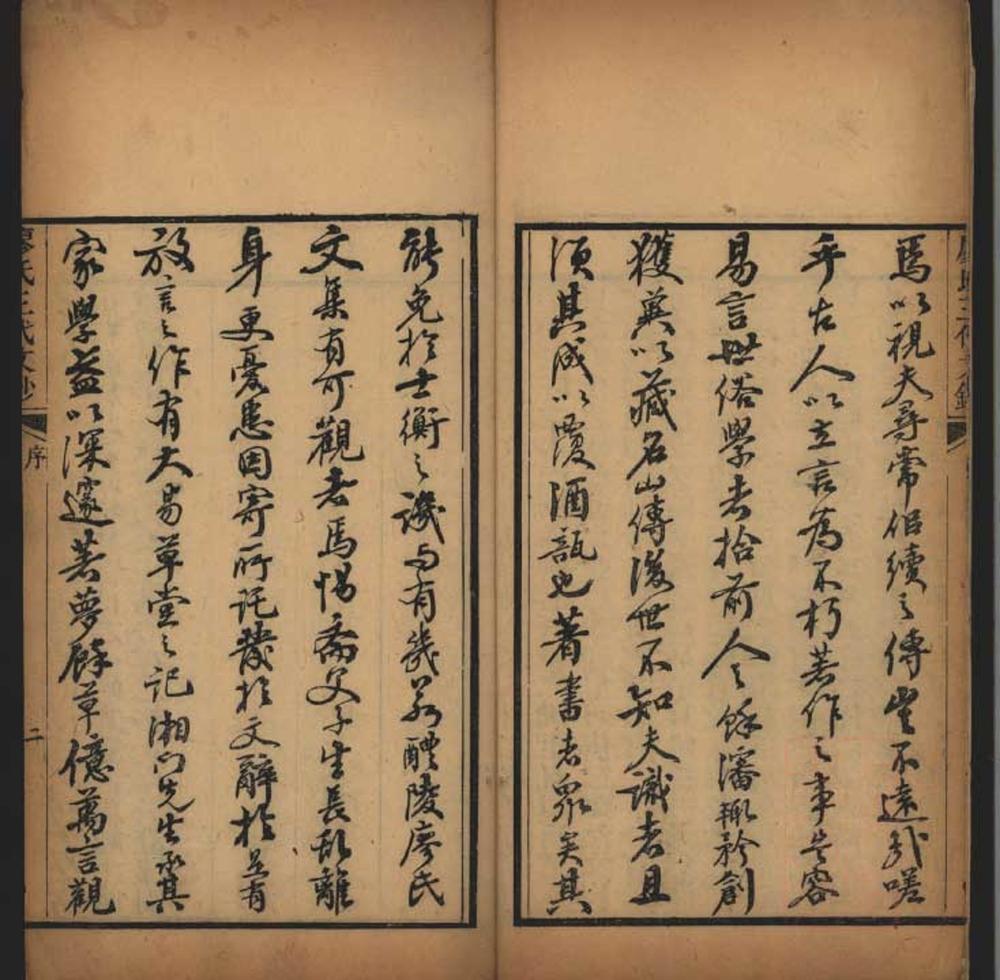 焉以視夫尋常侶續之傳豈不遠哉嗟
乎古人以立言為不朽若作之事豈容
易言世俗學者拾前人之餘瀋輒矜創
獲冀以藏名山傳後世不知夫識者且
須其成以覆酒瓿也著書者眾矣其
能免於士衡之譏與有幾若醴陵廖氏
文集有可觀者焉惕齋父子生長亂離
身更憂患因寄所託發於文辭於是有
放言之作有大易草堂之記湘門先生承其
家學益以深邃若夢餘草億萬言觀
廖氏三代文鈔
序
二